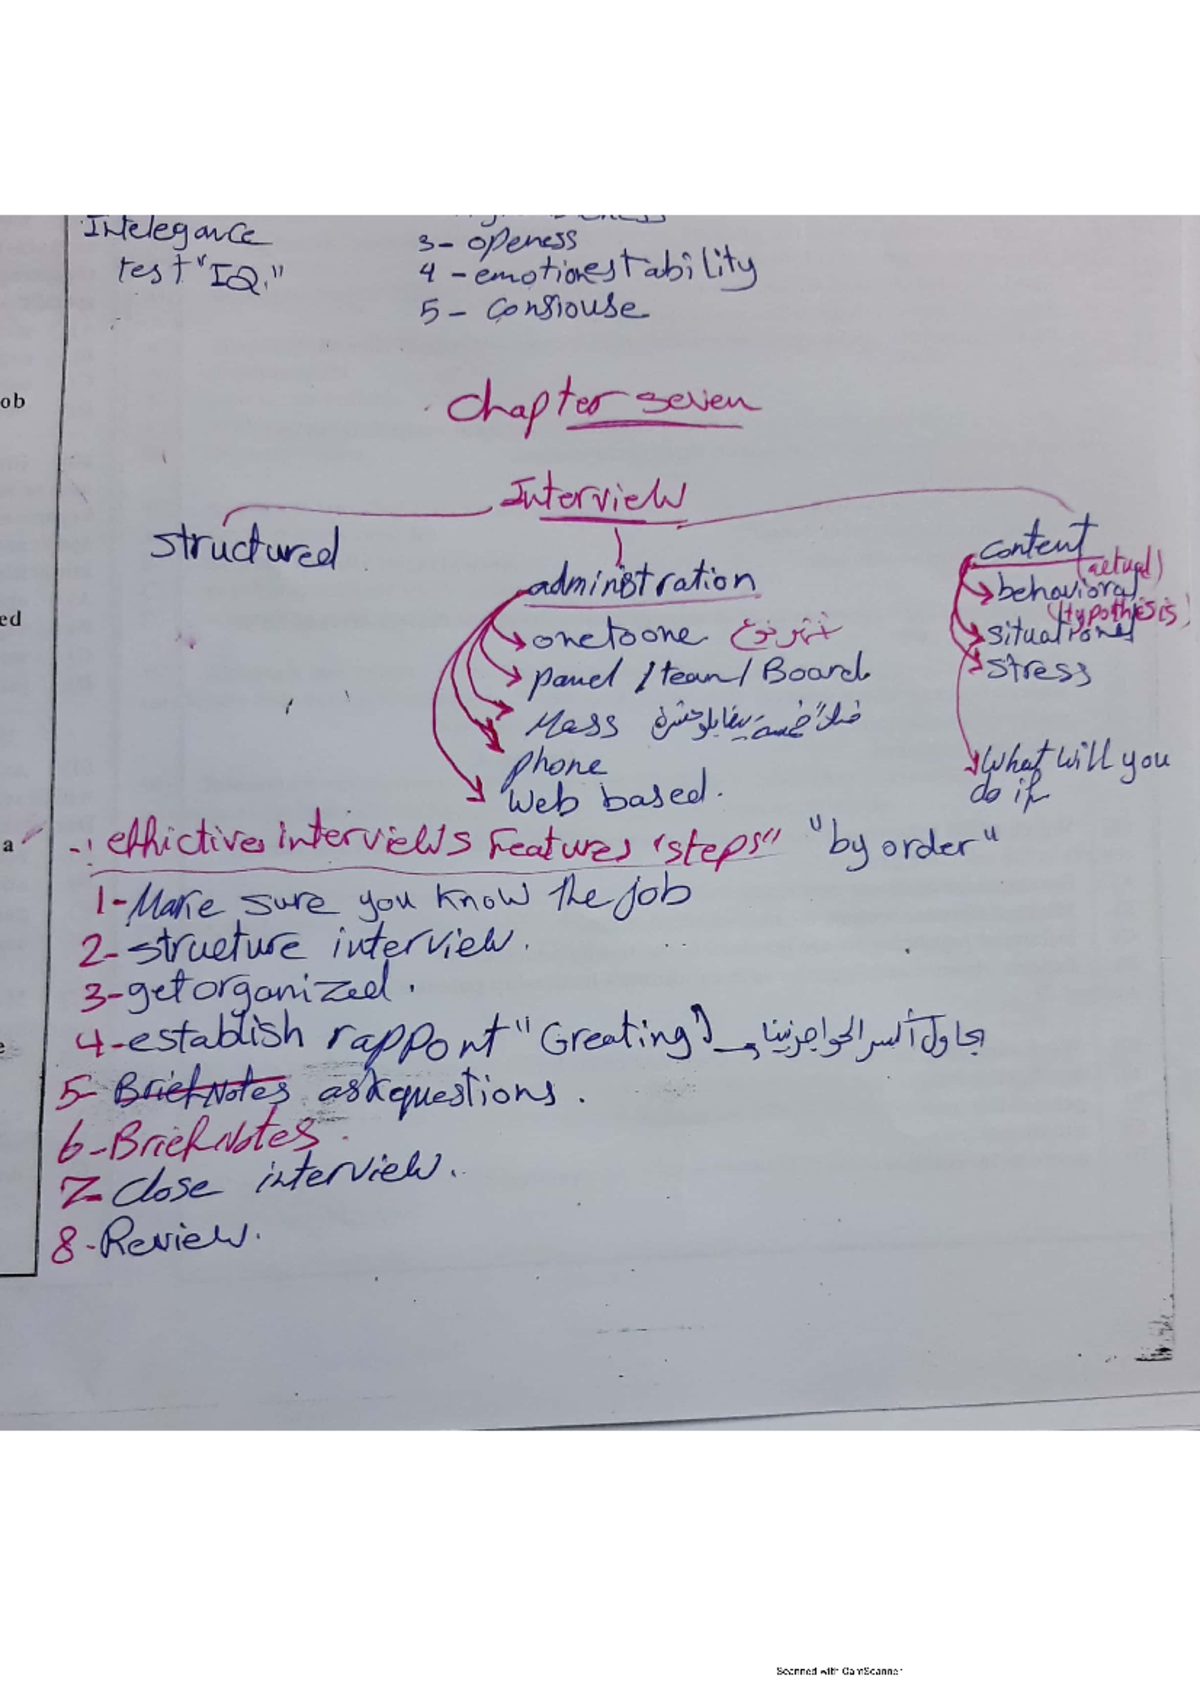 Intelegance
test "IQ."
3- openess
4 - emotionestability
5 - Consiouse
ob
chapter seven
Interview
structured
content
(actual)
administration
behavioral
(Hypothesis)
one to one
situational
panel / team / Board
stress
Mass
ed
phone
What will you
do if
Web based.
a
effictive interviews Features "steps" "by order"
1- Make sure you know the job
2- structure interview.
3- get organized.
4- establish rapport "Greating" يحاول أكسر الحواجز بينا و
e
5- Brief Notes ask questions.
6- Brief Notes.
7- Close interview.
8- Review.
Scanned with CamScanner